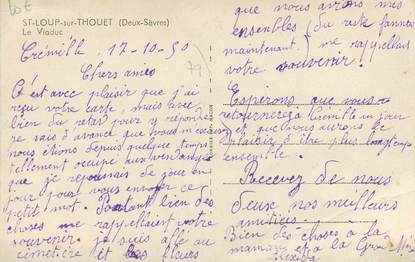 ST-LOUP-sur-THOUET (Deux-Sèvres)
Le Viaduc
Crémille, 17-10-50
Chers amis
C'est avec plaisir que j'ai
reçu votre carte, mais avec
bien du retar pour y répondre
je sais d'avance que vous
nous étions depuis quelque temps
tellement occupé aux vendanges
que je repoussais de jour en
jour pour vous envoyer ce
petit mot. Pourtant bien des
choses me rappellaient votre
souvenir. je suis allé au
cimetière et les fleurs
que nous avons mis
ensembles du reste fannés
maintenant me rappellait
votre souvenir!
Espérons que vous
retournerez à Crémille un jour
et que nous aurons le
plaisir d'être plus longtemps
ensemble.
Recevez de nous
deux nos meilleurs
amitiés
Bien des choses à la
maman et à la